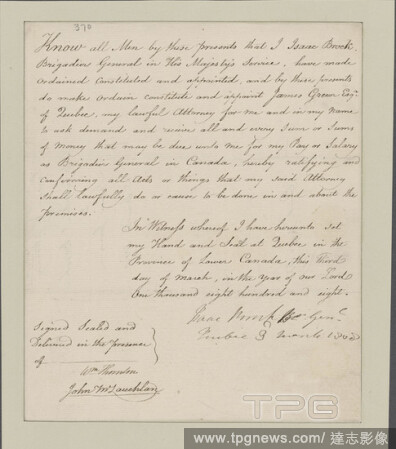 370
Know all Men by these presents that I Isaac Brock
Brigadier General in His Majesty's Service, have made
ordained constituted and appointed, and by these presents
do make ordain constitute and appoint James Green Esqr.
of Quebec, my lawful Attorney for me and in my name
to ask demand and receive all and every Sum or Sums
of Money that may be due unto me for my Pay or Salary
as Brigadier General in Canada, hereby ratifying and
confirming all Acts or things that my said Attorney
shall lawfully do or cause to be done in and about the
premises.
In Witness whereof I have hereunto set
my Hand and Seal at Quebec in the
Province of Lower Canada, this third
day of March, in the Year of our Lord
One thousand eight hundred and eight.
Isaac Brock Br Genl.
Quebec 3 March 1808
Signed Sealed and
Delivered in the presence
of
Wm Thornton
John McLauchlan
TPG
www.tpgnews.com/達志影像